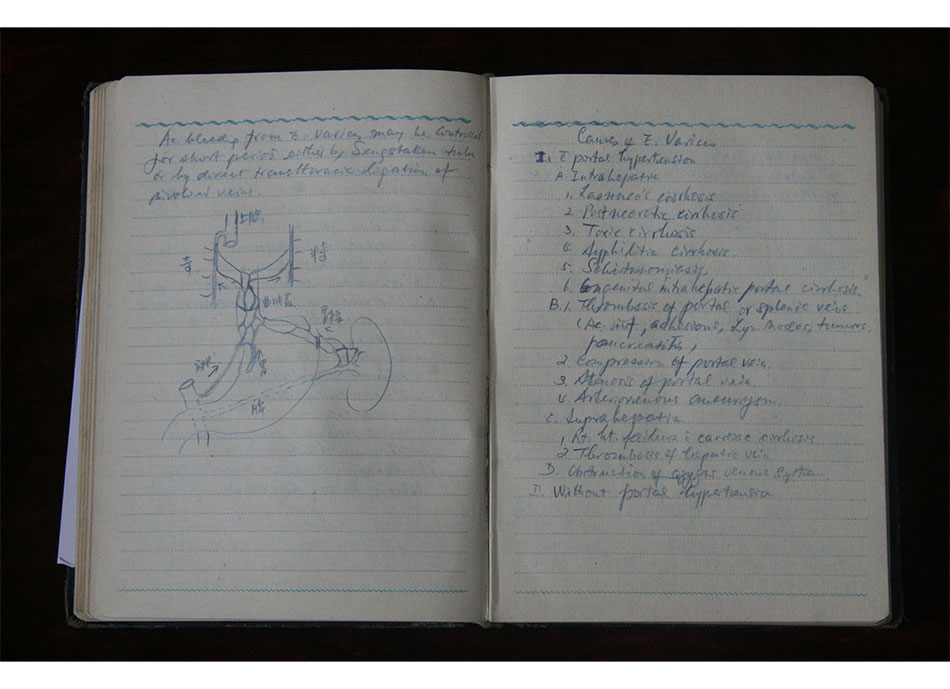 Ac bleedig from E. varices may be controlled
for short period either by Sengstaken tube
or by direct transthoracic ligation of
involved vein.
上腔
奇
Causes of E. Varices
I. c̄ portal hypertension
A. Intrahepatic
1. Laennec's cirrhosis
2. Postnecrotic cirrhosis
3. Toxic cirrhosis
4. Syphilitic cirrhosis.
5. Schistosomiasis
6. Congenital intrahepatic portal cirrhosis.
B. 1. Thrombosis of portal or splenic vein
(Ac. inf, adhesions, Lym nodes, tumors,
pancreatitis,
2. Compression of portal vein.
3. Stenosis of portal vein
4. Arteriovenous aneurysm.
C. Suprahepatic
1. Rt. ht. failure c̄ cardiac cirrhosis
2. Thrombosis of hepatic vein
D. Obstruction of azygos venous system.
II. Without portal hypertension